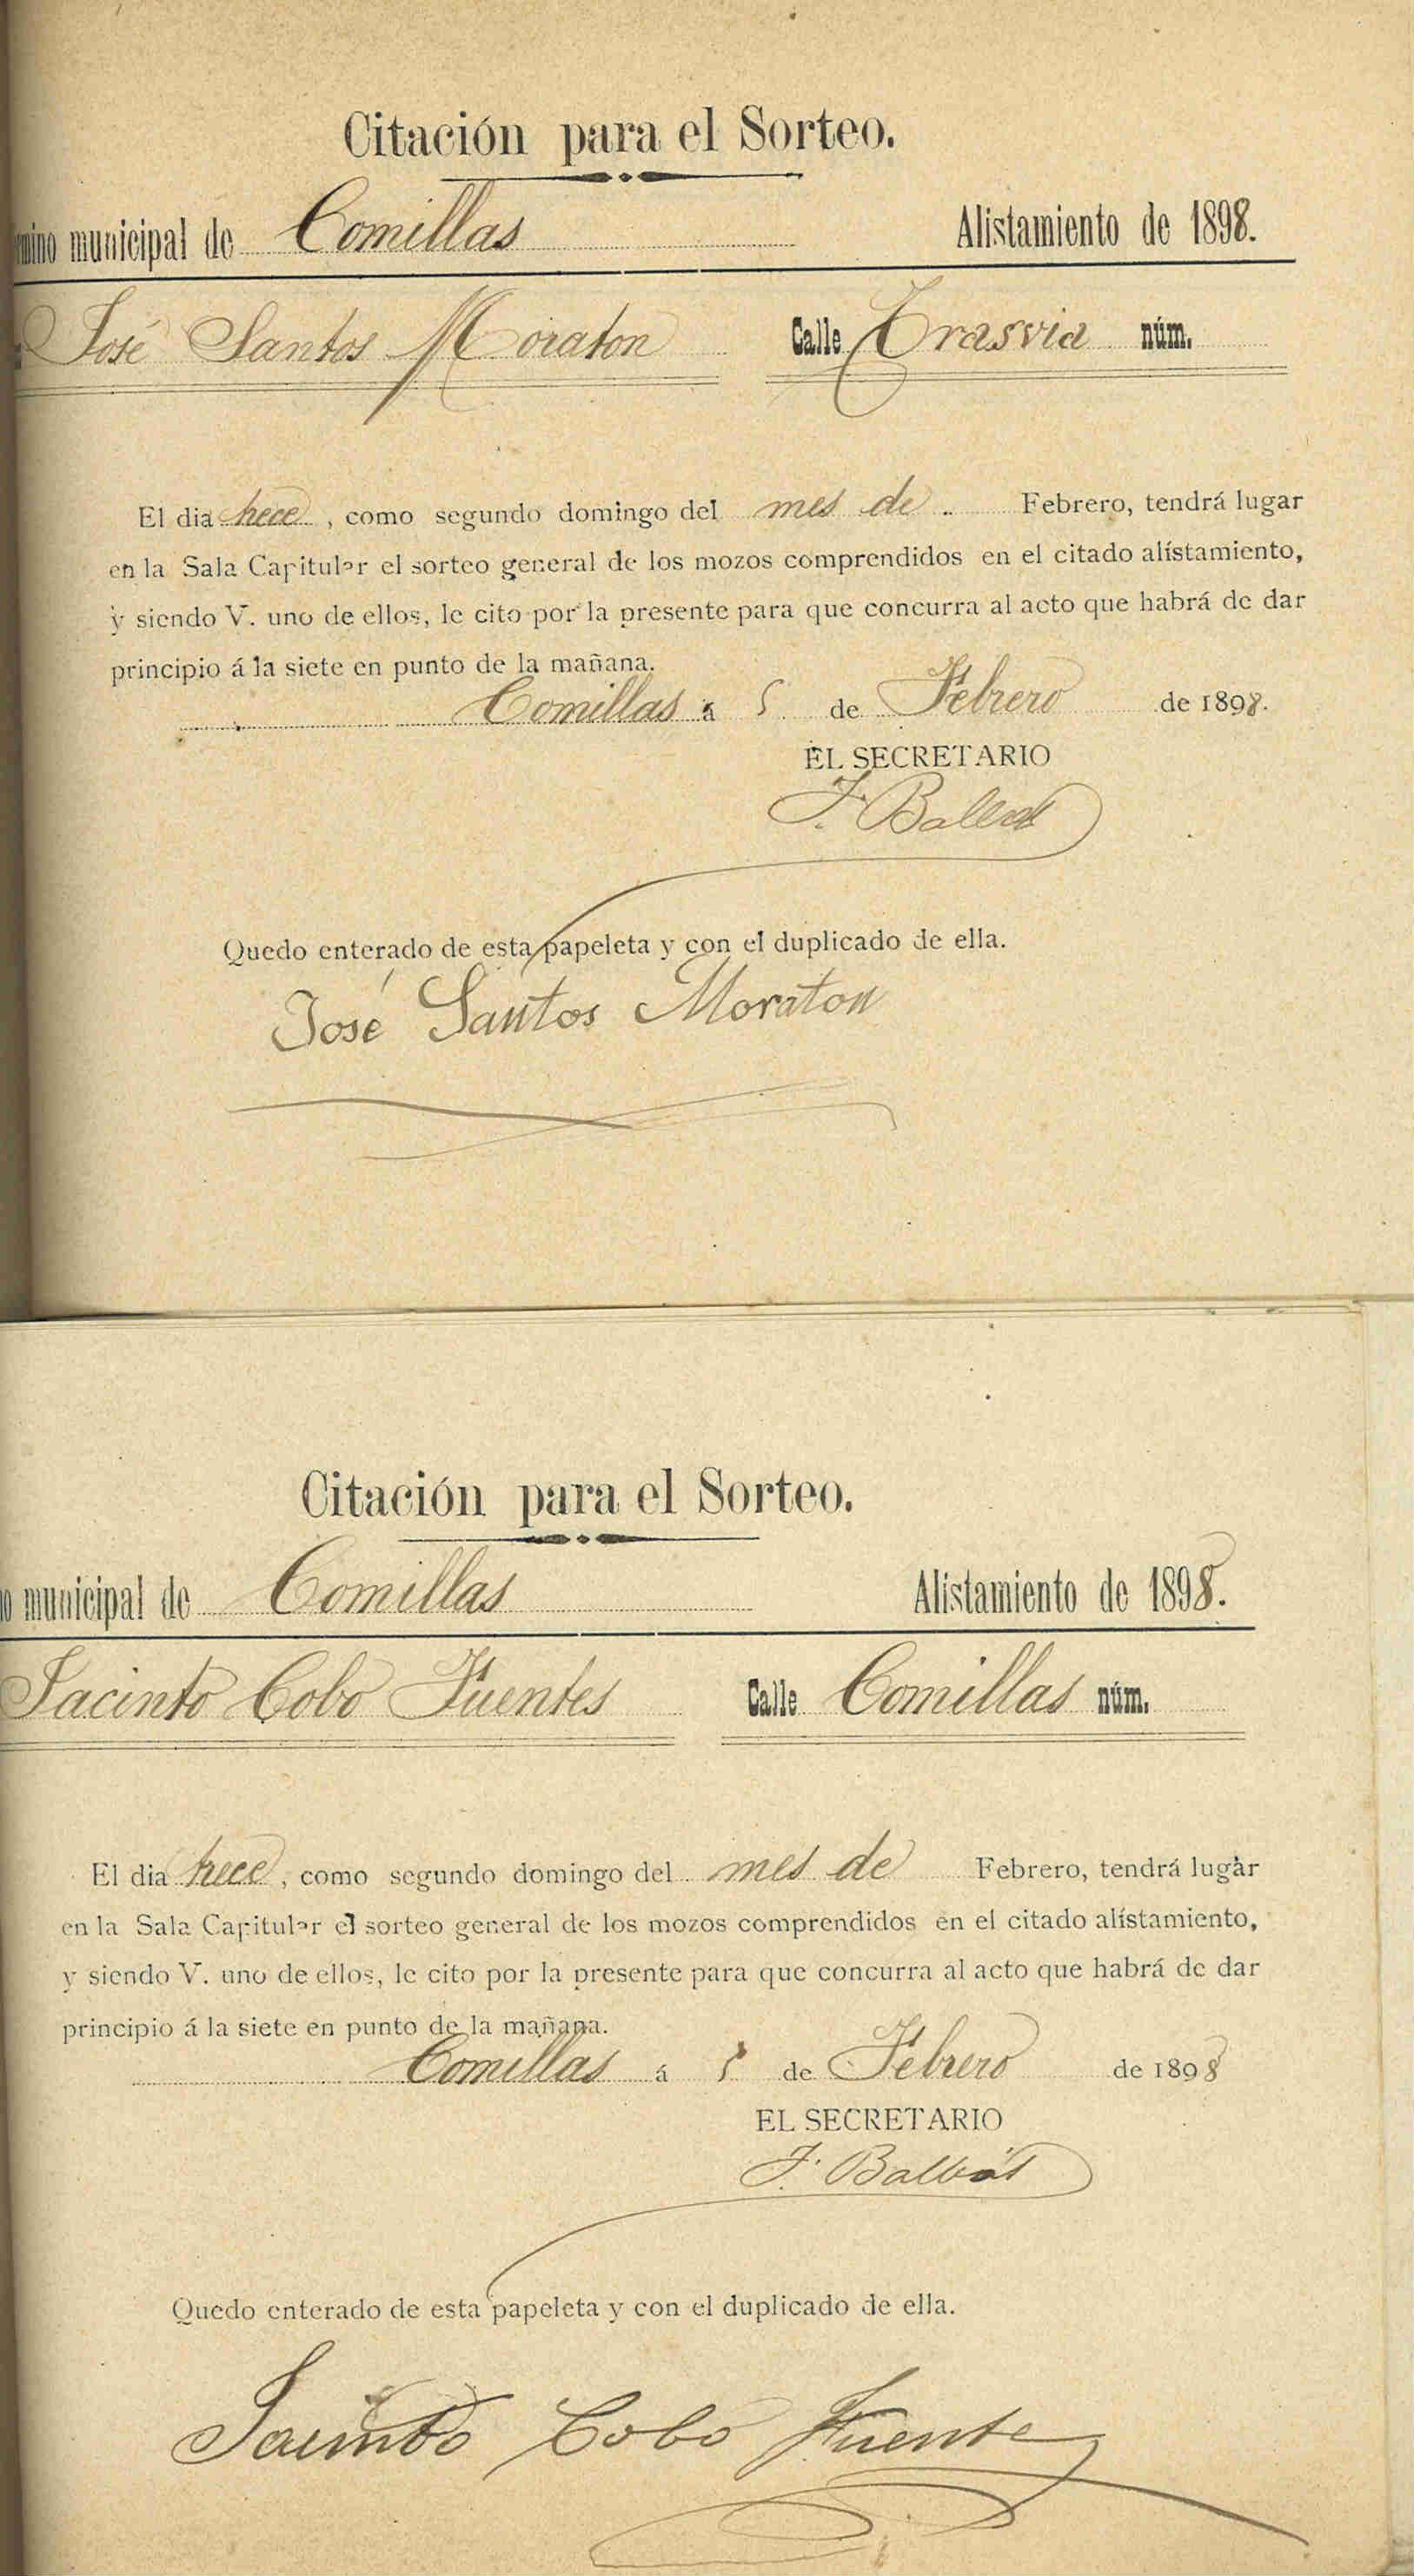 Citación para el Sorteo.
mino municipal de Comillas Alistamiento de 1898.
José Santos Moraton Calle Trasvia núm.
El dia trece, como segundo domingo del mes de Febrero, tendrá lugar
en la Sala Capitular el sorteo general de los mozos comprendidos en el citado alistamiento,
y siendo V. uno de ellos, le cito por la presente para que concurra al acto que habrá de dar
principio á la siete en punto de la mañana.
Comillas á 5 de Febrero de 1898.
EL SECRETARIO
F. Balbás
Quedo enterado de esta papeleta y con el duplicado de ella.
José Santos Moraton
Citación para el Sorteo.
o municipal de Comillas Alistamiento de 1898.
Jacinto Cobo Fuentes Calle Comillas núm.
El dia trece, como segundo domingo del mes de Febrero, tendrá lugar
en la Sala Capitular el sorteo general de los mozos comprendidos en el citado alistamiento,
y siendo V. uno de ellos, le cito por la presente para que concurra al acto que habrá de dar
principio á la siete en punto de la mañana.
Comillas á 5 de Febrero de 1898
EL SECRETARIO
F. Balbás
Quedo enterado de esta papeleta y con el duplicado de ella.
Jacinto Cobo Fuente